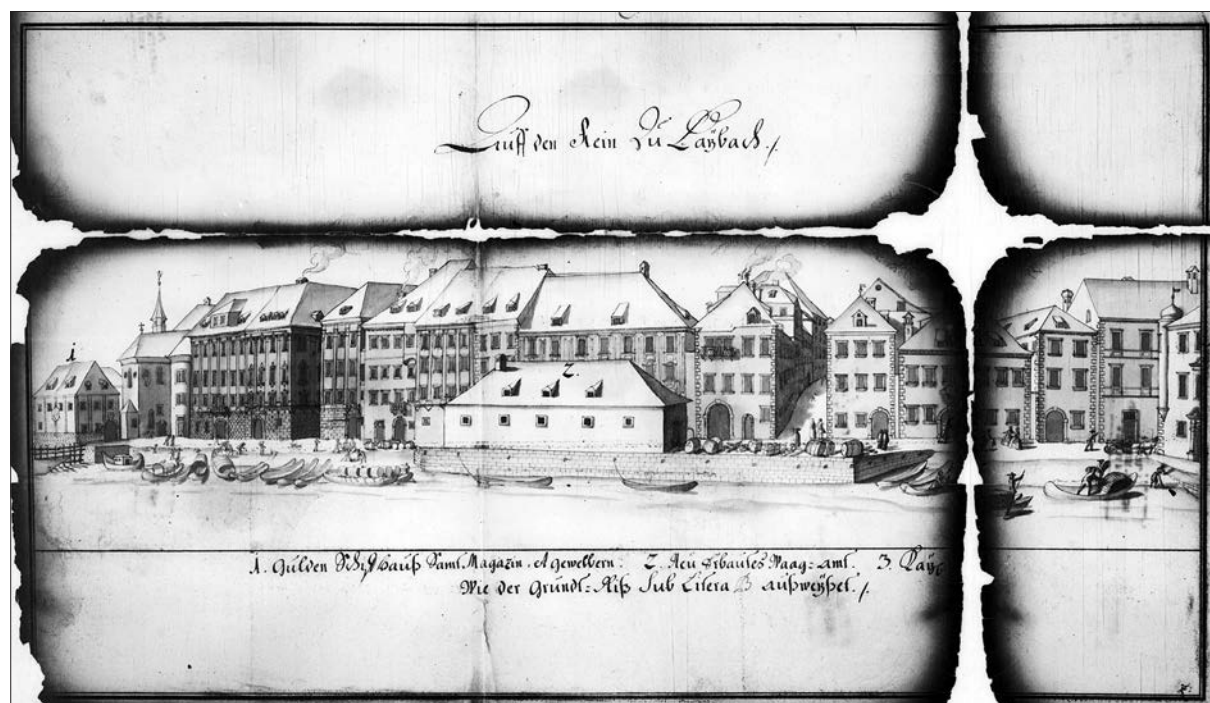 Auff den Rein Zu Laybach ./.
1.
2.
1. Gulden Schif Hauß Samt Magazin, et gewelbern. 2. Neu Erbautes Waag=amt. 3. Lay
Wie der Grundt=Riß Sub Litera B außweyset ./.